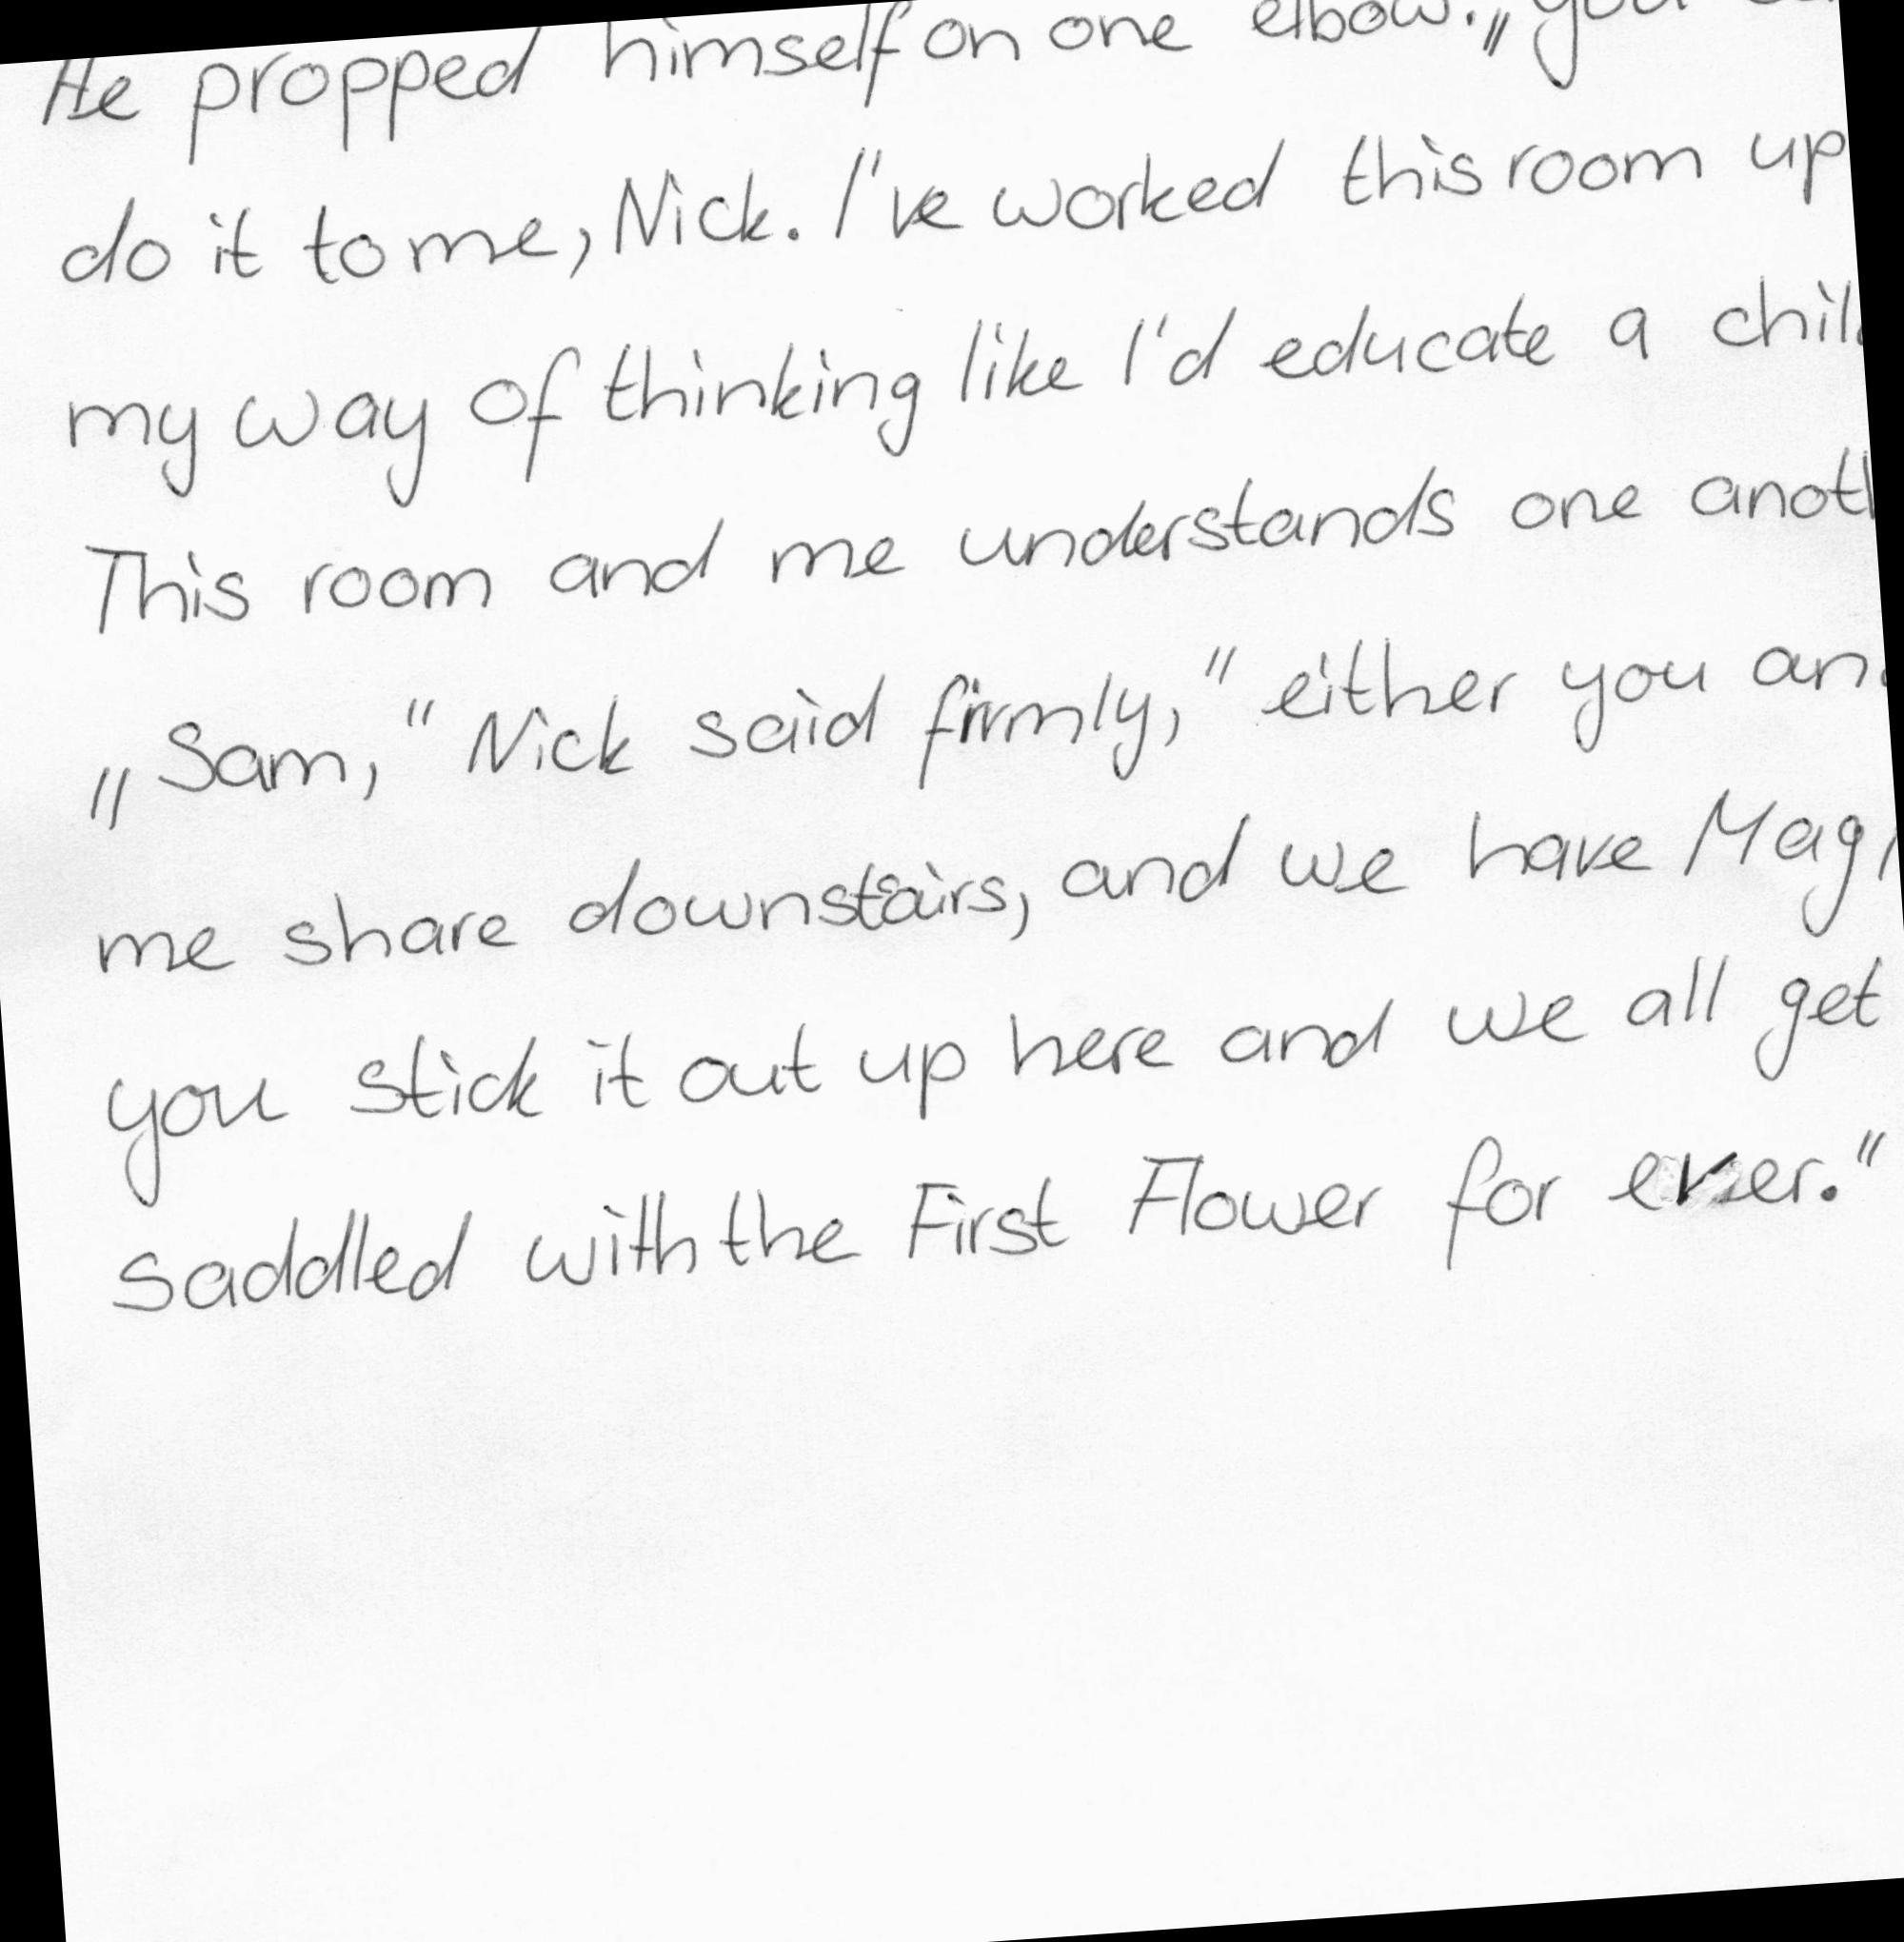 He propped himself on one elbow. „you
do it to me, Nick. I've worked this room up
my way of thinking like I'd educate a
This room and me understands one
„Sam," Nick said firmly," either you
me share downstairs, and we have
you stick it out up here and we all get
saddled with the First Flower for ever."